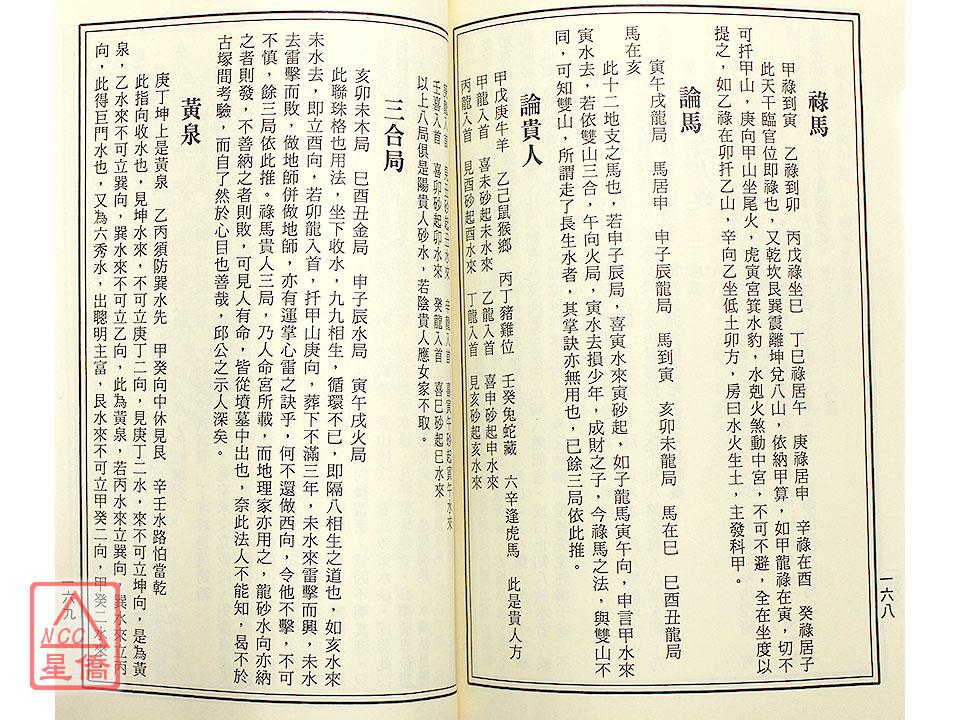 祿馬
甲祿到寅　乙祿到卯　丙戊祿坐巳　丁巳祿居午　庚祿居申　辛祿在酉　癸祿居子
此天干臨官位即祿也，又乾坎艮巽震離坤兌八山，依納甲算，如甲龍祿在寅，切不
可扦甲山，庚向甲山坐尾火，虎寅宮箕水豹，水剋火煞動中宮，不可不避，全在坐度以
提之，如乙祿在卯扦乙山，辛向乙坐低土卯方，房曰水火生土，主發科甲。
論馬
寅午戌龍局　馬居申　申子辰龍局　馬到寅　亥卯未龍局　馬在巳　巳酉丑龍局
馬在亥
此十二地支之馬也，若申子辰局，喜寅水來寅砂起，如子龍馬寅午向，申言甲水來
寅水去，若依雙山三合，午向火局，寅水去損少年，成財之子，今祿馬之法，與雙山不
同，可知雙山，所謂走了長生水者，其掌訣亦無用也，已餘三局依此推。
論貴人
甲戊庚牛羊　乙己鼠猴鄉　丙丁豬雞位　壬癸兔蛇藏　六辛逢虎馬　此是貴人方
甲龍入首　喜未砂起未水來　乙龍入首　喜申砂起申水來
丙龍入首　見酉砂起酉水來　丁龍入首　見亥砂起亥水來
辛龍入首　喜寅午砂起寅午水來
壬喜入首　喜卯砂起卯水來　癸龍入首　喜巳砂起巳水來
以上八局俱是陽貴人砂水，若陰貴人應女家不取。
三合局
亥卯未木局　巳酉丑金局　申子辰水局　寅午戌火局
此聯珠格也用法，坐下收水，九九相生，循環不已，即隔八相生之道也，如亥水來
未水去，即立酉向，若卯龍入首，扦甲山庚向，葬下不滿三年，未水來雷擊而興，未水
去雷擊而敗，做地師併做地師，亦有運掌心雷之訣乎，何不還做酉向，令他不擊，不可
不慎，餘三局依此推。祿馬貴人三局，乃人命宮所載，而地理家亦用之，龍砂水向亦納
之者則發，不善納之者則敗，可見人有命，皆從墳墓中出也，奈此法人不能知，曷不於
古塚間考驗，而自了然於心目也善哉，邱公之示人深矣。
黃泉
庚丁坤上是黃泉　乙丙須防巽水先　甲癸向中休見艮　辛壬水路怕當乾
此指向收水也，見坤水來，不可立庚丁二向，見庚丁二水，來不可立坤向，是為黃
泉，乙水來不可立巽向，巽水來不可立乙向，此為黃泉，若丙水來立巽向，巽水來立丙
向，此得巨門水也，又為六秀水，出聰明主富，艮水來不可立甲癸二向，甲癸二水來，
一六八
一六九
NCC
星僑